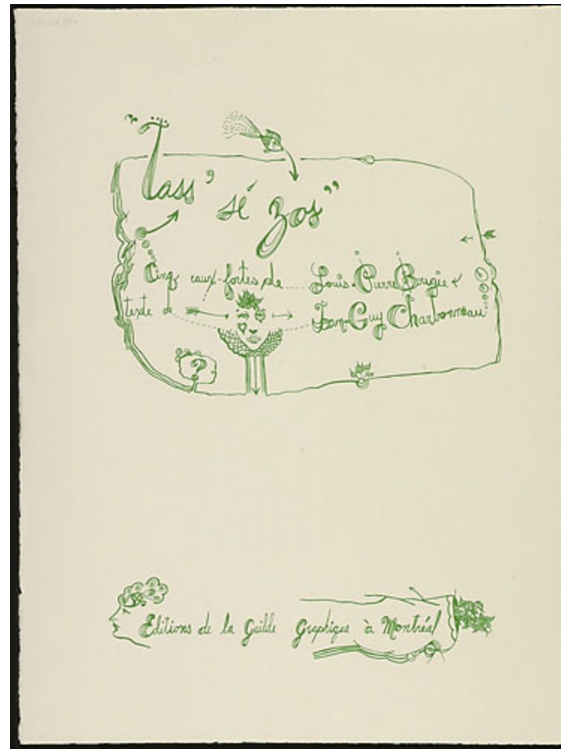 Tass' sé zos"
Cinq eaux-fortes de Louis-Pierre Bougie &
texte de Jean-Guy Charbonneau
?
Editions de la Guilde Graphique à Montréal